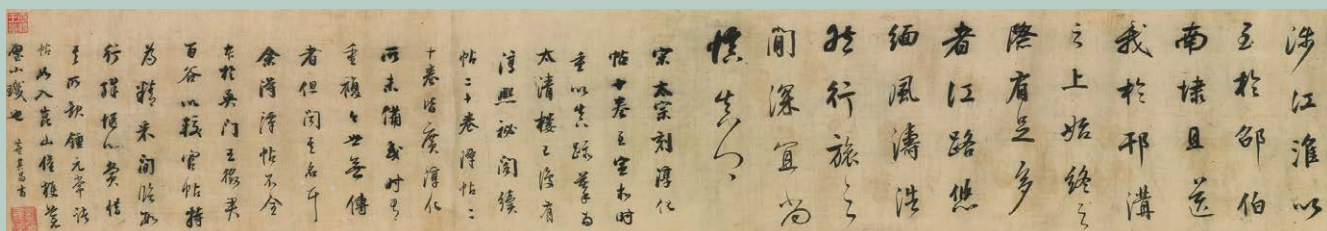 涉江淮以
至於邵伯
南埭且送
我於邗溝
之上始終之
際有足多
者江路悠
緬風濤浩
然行旅之
間深宜尚
慎
宋太宗刻淳化
帖十卷至宣和時
重以真跡摹為
太清樓之後有
淳熙祕閣續
帖二十卷潭帖二
十卷皆廣淳化
所未備或时有
重複今世無傳
者但闻其名耳
余得潭帖不全
本於吳門王徵君
百谷以較官帖特
為精采閒臨數
行殊愜心賞
鍾元常諸
帖如入崑山僅
小璣也 董其昌書